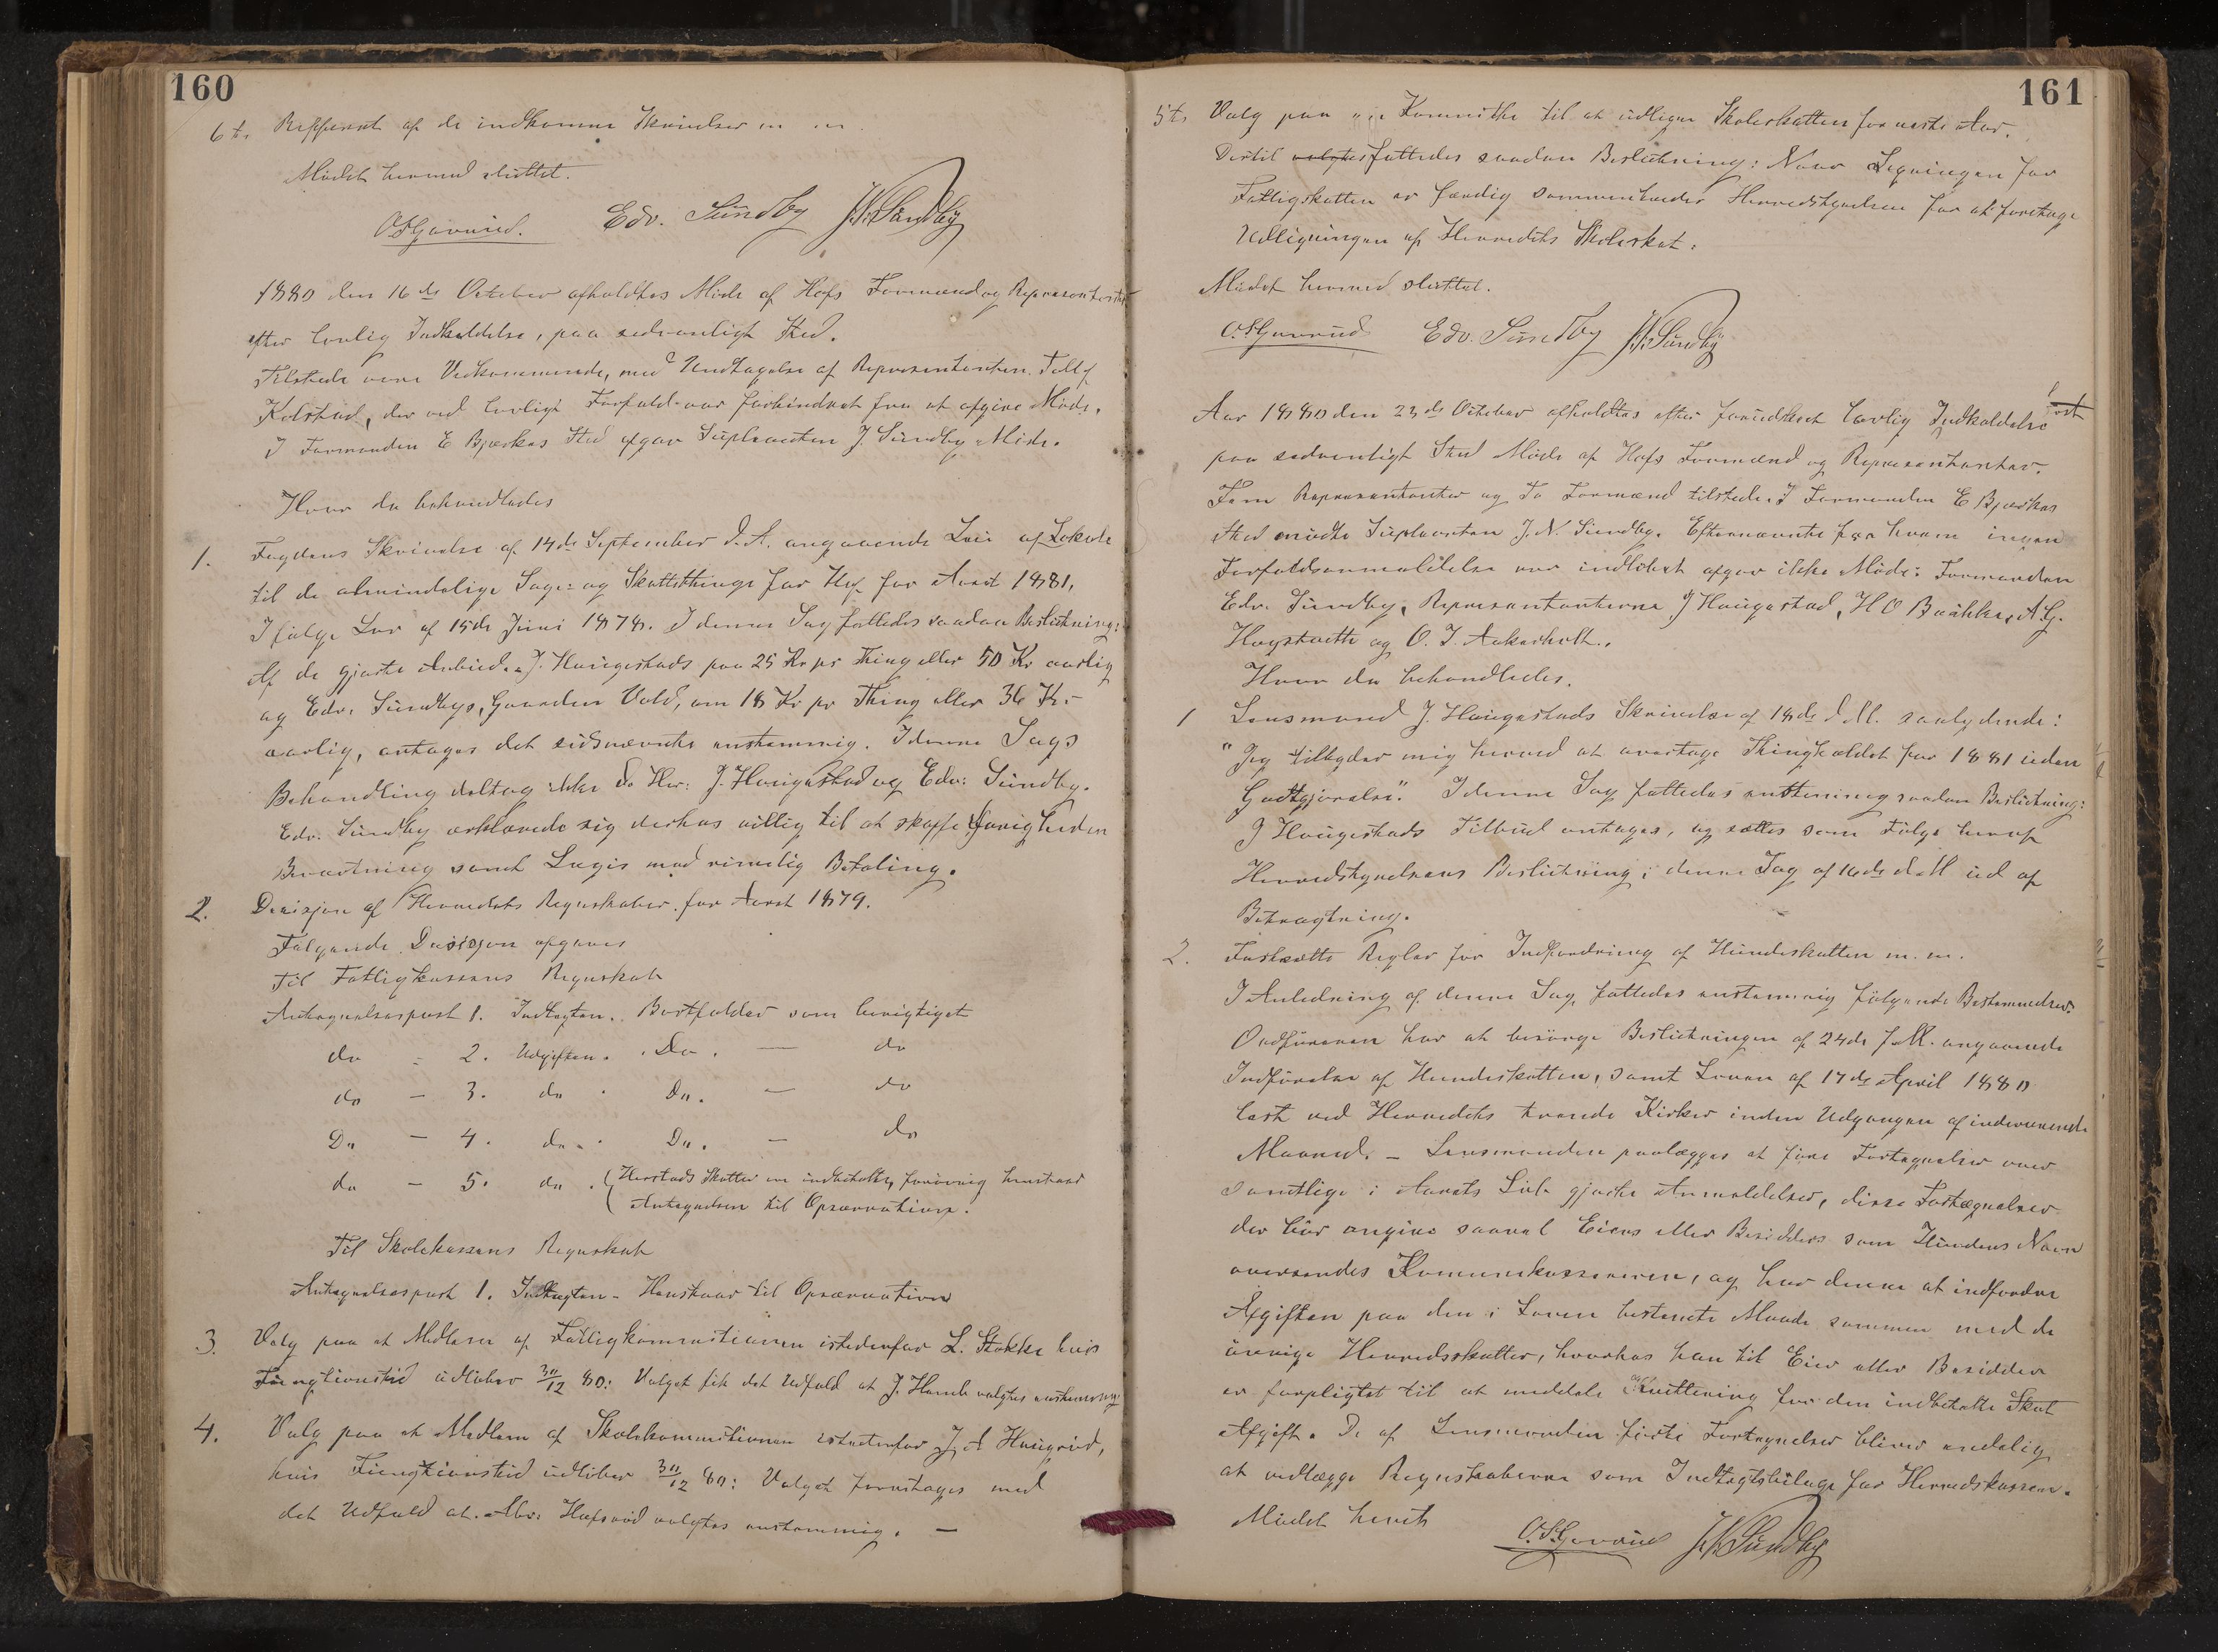 160
6te Refferat af de indkomne Skrivelser m m.
Mødet hermed sluttet.
O.S.Gavrud. Edv. Sundby J.N.Sundby
1880 den 16de October afholdtes Møde af Hofs Formænd og Representanter
efter lovlig Indkaldelse, paa sedvanligt Sted.
Tilstede vare Vedkommende, med Undtagelse af Representanten
Kolstad, der ved lovligt Forfald var forhindret fra at afgive Møde.
I Formanden E Bjerkes Sted afgav Supleanten J. Sundby Møde.
Hvor da behandledes
1. Fogdens Skrivelse af 14de September d.A. angaaende Leie af Lokale
til de almindelige Sage- og Skattethinge for Hof for Aaret 1881,
Ifølge Lov af 15de Juni 1878. I denne Sag fattedes saadan Beslutning:
Af de gjorte Anbud. J. Haugestads paa 25 Kr pr Thing eller 50 Kr aarlig
og Edv. Sundbys, Gaarden Vold, om 18 Kr pr Thing eller 36 Kr
aarlig, antages det sidsnævnte enstemmig. I denne Sags
Behandling deltog ikke d'Hrr: J. Haugestad og Edv: Sundby.
Edv. Sundby erklærede sig derhos villig til at skaffe Øvrigheden
Bevertning samt Logis mod rimelig Betaling.
2. Desisjon af Herredets Regnskaber for Aaret 1879.
Følgende Desisjon afgaves
Til Fattigkassens Regnskab
Antegnelsespost 1. Indtægten. Bortfalder som berigtiget
do - 2. Udgiften. Do. — do
do - 3. do Do. — do
Do - 4. do Do. — do
do - 5. do. Skatter er indbetalte, forøvrig henstaar
Antegnelsen til Opservation.
Til Skolekassens Regnskab
Antegnelsespost 1. Indtægten - Henstaar til Opservation
3. Valg paa et Medlem af Fattigkommisionen istedenfor L. Stokke hvis
Fungtionstid udløber 30/12 80: Valget fik det Udfald at J. Hamb valgtes enstemmig
4. Valg paa et Medlem af Skolekommisionen istedenfor J. A Haugrud,
hvis Fungtionstid udløber 30/12 80: Valget foretages med
det Udfald at. Hafsrud valgtes enstemmig. —
161
5te Valg paa Kommitte til at udligne Skoleskatten for næste Aar.
Dertil valgtes fattedes saadan Beslutning: Naar Ligningen for
Fattigskatten er færdig sammentræder Herredstyrelsen for at foretage
Udligningen af Herredets Skoleskat.
Mødet hermed sluttet.
O.S.Gavrud Edv. Sundby J.N.Sundby
Aar 1880 den 23de October afholdtes efter forudskeet lovlig Indkaldelse
paa sedvanligt Sted Møde af Hofs Formænd og Representanter.
Fem Representanter og To Formænd tilstede. I Formanden E Bjerkes
Sted mødte Supleanten J. N. Sundby. Efternævnte fra hvem ingen
Forfaldsanmeldelse var indløbet afgav ikke Møde: Formanden
Edv. Sundby, Representanterne J Haugestad, H O Bakke, A G.
Hagstvedt og O. J. Aakerholt.
Hvor da behandledes.
1 Lensmand J. Haugestads Skrivelse af 18de d.M. saalydende:
"Jeg tilbyder mig herved at overtage Thingholdet for 1881 uden
Godtgjørelse." I denne Sag fattedes enstemmig saadan Beslutning:
J Haugestads Tilbud antages, og sættes som Følge heraf
Herredstyrelsens Beslutning i denne Sag af 16de d.M ud af
Betragtning.
2. Fastsætte Regler for Indfordring af Hundeskatten m. m.
I Anledning af denne Sag, fattedes enstemmig følgende Bestemmelser:
Ordføreren har at besørge Beslutningen af 24de f.M. angaaende
Indførelse af Hundeskatten, samt Loven af 17de April 1880
læst ved Herredets tvende Kirker inden Udgangen af indeværende
Maaned. - Lensmanden paalægges at føre Fortegnelser over
samtlige i Aarets Løb gjorte Anmeldelser, disse Fortegnelser
der bør angive saavel Eiers eller Besidders som Hundens Navn
oversendes Kommunekassereren, og har denne at indfordre
Afgiften paa den i Loven bestemte Maade sammen med de
øvrige Herredsskatter, hvorhos han til Eier eller Besidder
er forpligtet til at meddele Kvittering for den indbetalte Skat
Afgift. De af Lensmanden førte Fortegnelser bliver endelig
at vedlægge Regnskaberne som Indtægtsbilage for Herredskassen.
Mødet hævet
O.S.Gavrud J.N.Sundby